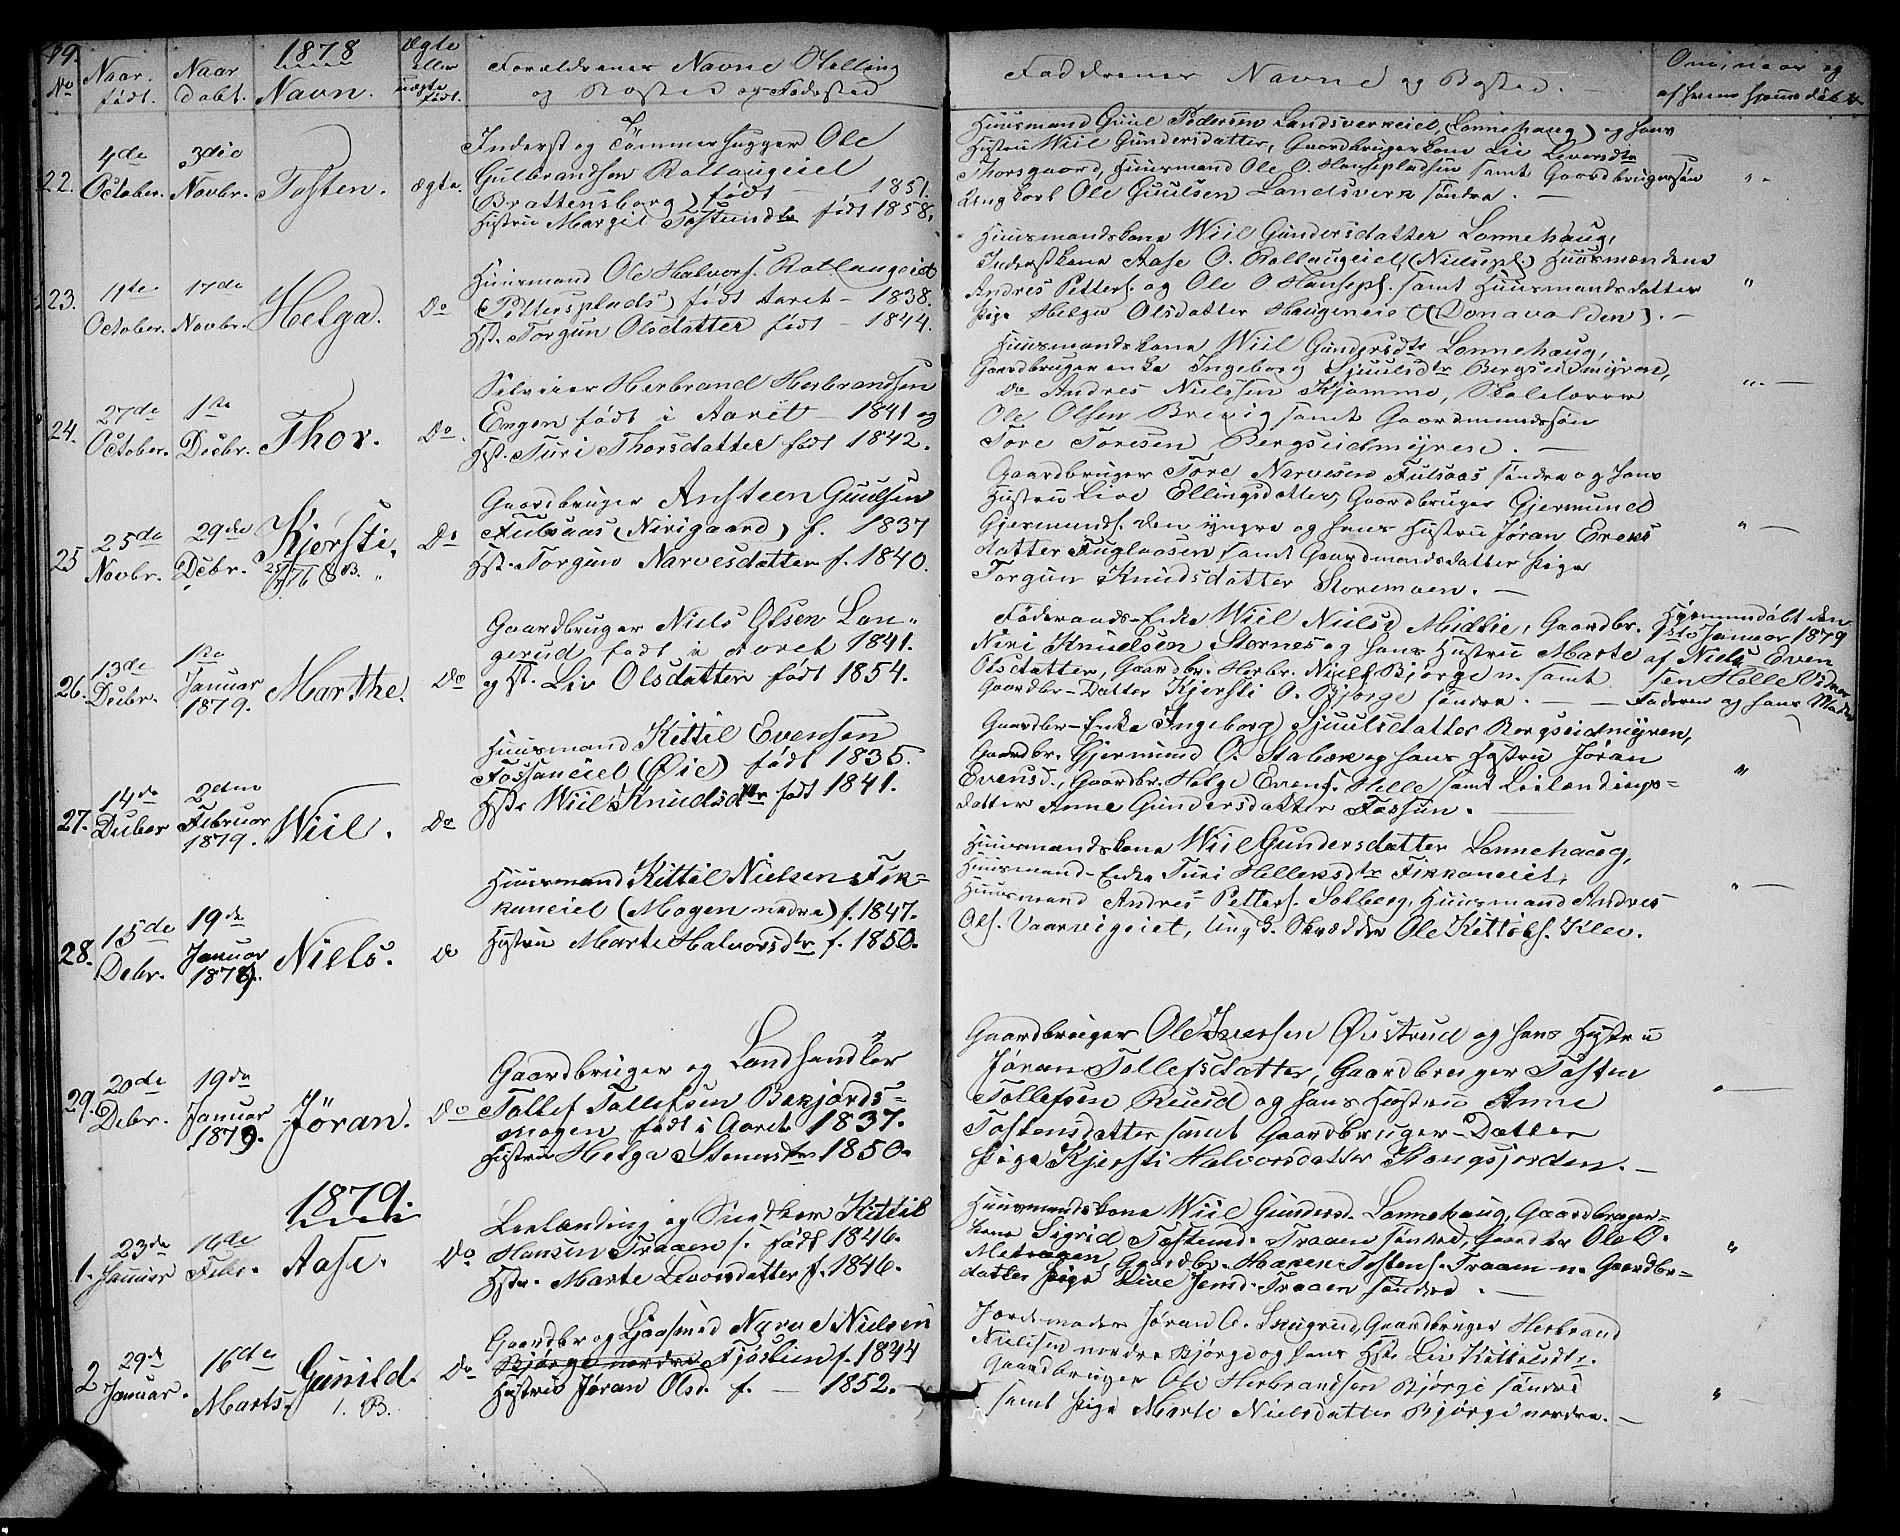 49.
No
Naar født.
Naar døbt.
1878
Navn.
Ægte eller uægte født.
Forældrenes Navne Stilling
og Bosted og Fødested
Faddernes Navne og Bosted. —
Om, naar og
af hvem hjemmedøbt
22.
4de October.
3die Novbr.
Tosten.
ægte.
Inderst og Tømmerhugger Ole
Gulbrandsen Rollaugeiel
(Brattensborg) født 1851.
Hustru Margit Tostensdtr født 1858.
Huusmand Guul Pedersen Landsverkeiel, (Lonnehaug) og hans
Hustru Wiil Gundersdatter, Gaardbrugerkone Liv Leversdtr
Thorsgaard, Huusmand Ole O. Hansepladsen samt Gaardbrugersøn
Ungkarl Ole Guulsen Landsverk søndre. —
23.
October.
17de Novbr.
Helga.
Do
Huusmand Ole Halvors. Rollaugeiel
(Pettersplads) født Aaret — 1838.
Hst. Torgun Olsdatter født — 1844.
Huusmandskone Wiil Gundersdatter Lonnehaug,
Inderstkone Aase O. Rollaugeiel, (Nielsepl.) Huusmændene
Andres Petters. og Ole O Hansepl. samt Huusmandsdatter
Pige Helge Olsdatter Haugeneie (Donavolden). —
24.
27de October.
1ste Decbr.
Thor.
Do.
Selveier Herbrand Herbrandsen
Engen født i Aaret 1841 og
Hst. Turi Thorsdatter født 1842.
Huusmandskone Wiil Gundersdtr Lonnehaug,
Gaardbrugerenke Ingeborg Sjuulsdtr Bergseidmyren,
Do Andres Nielssen Kjømme, Skolelærer
Ole Olsen Brevig samt Gaardmandssøn
Tore Toresen Bergseidmyren. —
25
25de Novbr.
29de Decbr.
Kjersti.
Do
Gaardbruger Ansteen Guulsen
Fulsaas (Nirigaard) f. 1837
Hst. Torgun Narvesdatter f. 1840.
Gaardbruger Tore Narvesen Fulsaas søndre og hans
Hustru Live Ellingsdatter, Gaardbruger Gjermund
Gjermunds. den yngre og hans Hustru Jøran Evens
datter Fuglaasen samt Gaardmandsdatter Pige
Torgun Knudsdatter Storemoen. —
26.
13de Decbr.
1ste Januar 1879.
Marthe.
Do
Gaardbruger Niels Olsen Lan-
gerud født i Aaret 1841.
og Hst. Liv Olsdatter født 1854.
Føderaads-Enke Wiil Nielsd Midtlie, Gaardbr.
Niri Knudsen Stærnes og hans Hustru Marte
Olsdatter, Gaardbr. Herbr. Niels Bjørge n. samt
Gaardbr-Datter Kjersti O. Bjørge søndre. —
Hjemmedøbt den
1ste Januar 1879
af Niels Even
sen Helle Ved
Faderen og hans Moder
27.
14de Decber
2den Februar 1879.
Wiil.
Do
Huusmand Kittil Evensen
Fossaneiel (Øie) født 1835.
Hstr Wiil Knudsdtr født 1841.
Gaardbr-Enke Ingeborg Sjuulsdatter Bergseidmyren,
Gaardbr. Gjermund O. Stabæk og hans Hustru Jøran
Evensd., Gaardbr. Helge Evens. Helle samt Leilendings-
datter Anne Gundersdatter Fossun. —
28.
15de Debr.
19de Januar 1879.
Niels.
Do
Huusmand Kittil Nielsen Fik-
kaneiel (Mogen nedre) f. 1847.
Hustru Marte Halvorsdtr f. 1850.
Huusmandskone Wiil Gundersdatter Lonnehaug,
Huusmand-Enke Turi Hellensdtr Fikkaneiel,
Huusmand Andres Petters. Solberg, Huusmand Andres
Ols. Vaarvigeiet, Ungk. Skrædder Ole Kittils. Klev.
29.
20de Debr.
19de Januar 1879.
Jøran.
Do
Gaardbruger og Landhandler
Tollef Tollefsen Bekjords-
mogen født i Aaret 1837.
Hustru Helga Stenersdtr 1850.
Gaardbruger Ole Iversen Øvstrud og hans Hustru
Jøran Tollefsdatter, Gaardbruger Tosten
Tollefsen Ruud og hans Hustru Anne
Tostensdatter samt Gaardbruger-Datter
Pige Kjersti Halvorsdatter Kongsjorden. —
1879.
1.
23de Januar
16de Febr.
Aase.
Do
Leilænding og Snedker Kittil
Hansen Traaen s. født 1846.
Hstr. Marte Leversdatter f. 1846.
Huusmandskone Wiil Gundersd. Lonnehaug, Gaardbruger-
kone Sigrid Tostensd. Traaen søndre, Gaardbr Ole O.
Medhagen, Gaardbr. Haagen Tostens. Traaen n. Gaardbr-
datter Pige Live Jensd. Traaen søndre. —
2
29de Januar.
16de Marts.
Gunild.
1. B.
Do
Gaardbr og Ljaasmed Narve Nielsen
Bjørge nordre Fjøslien f. 1844
Hustru Jøran Olsd. f. — 1852.
Jordemoder Jøran O. Snugrud, Gaardbruger Herbrand
Nielssen nordre Bjørge og hans Hst. Liv Kittilsdtr.
Gaardbruger Ole Herbrandsen Bjørge søndre
samt Pige Marte Nielsdatter Bjørge nordre. —